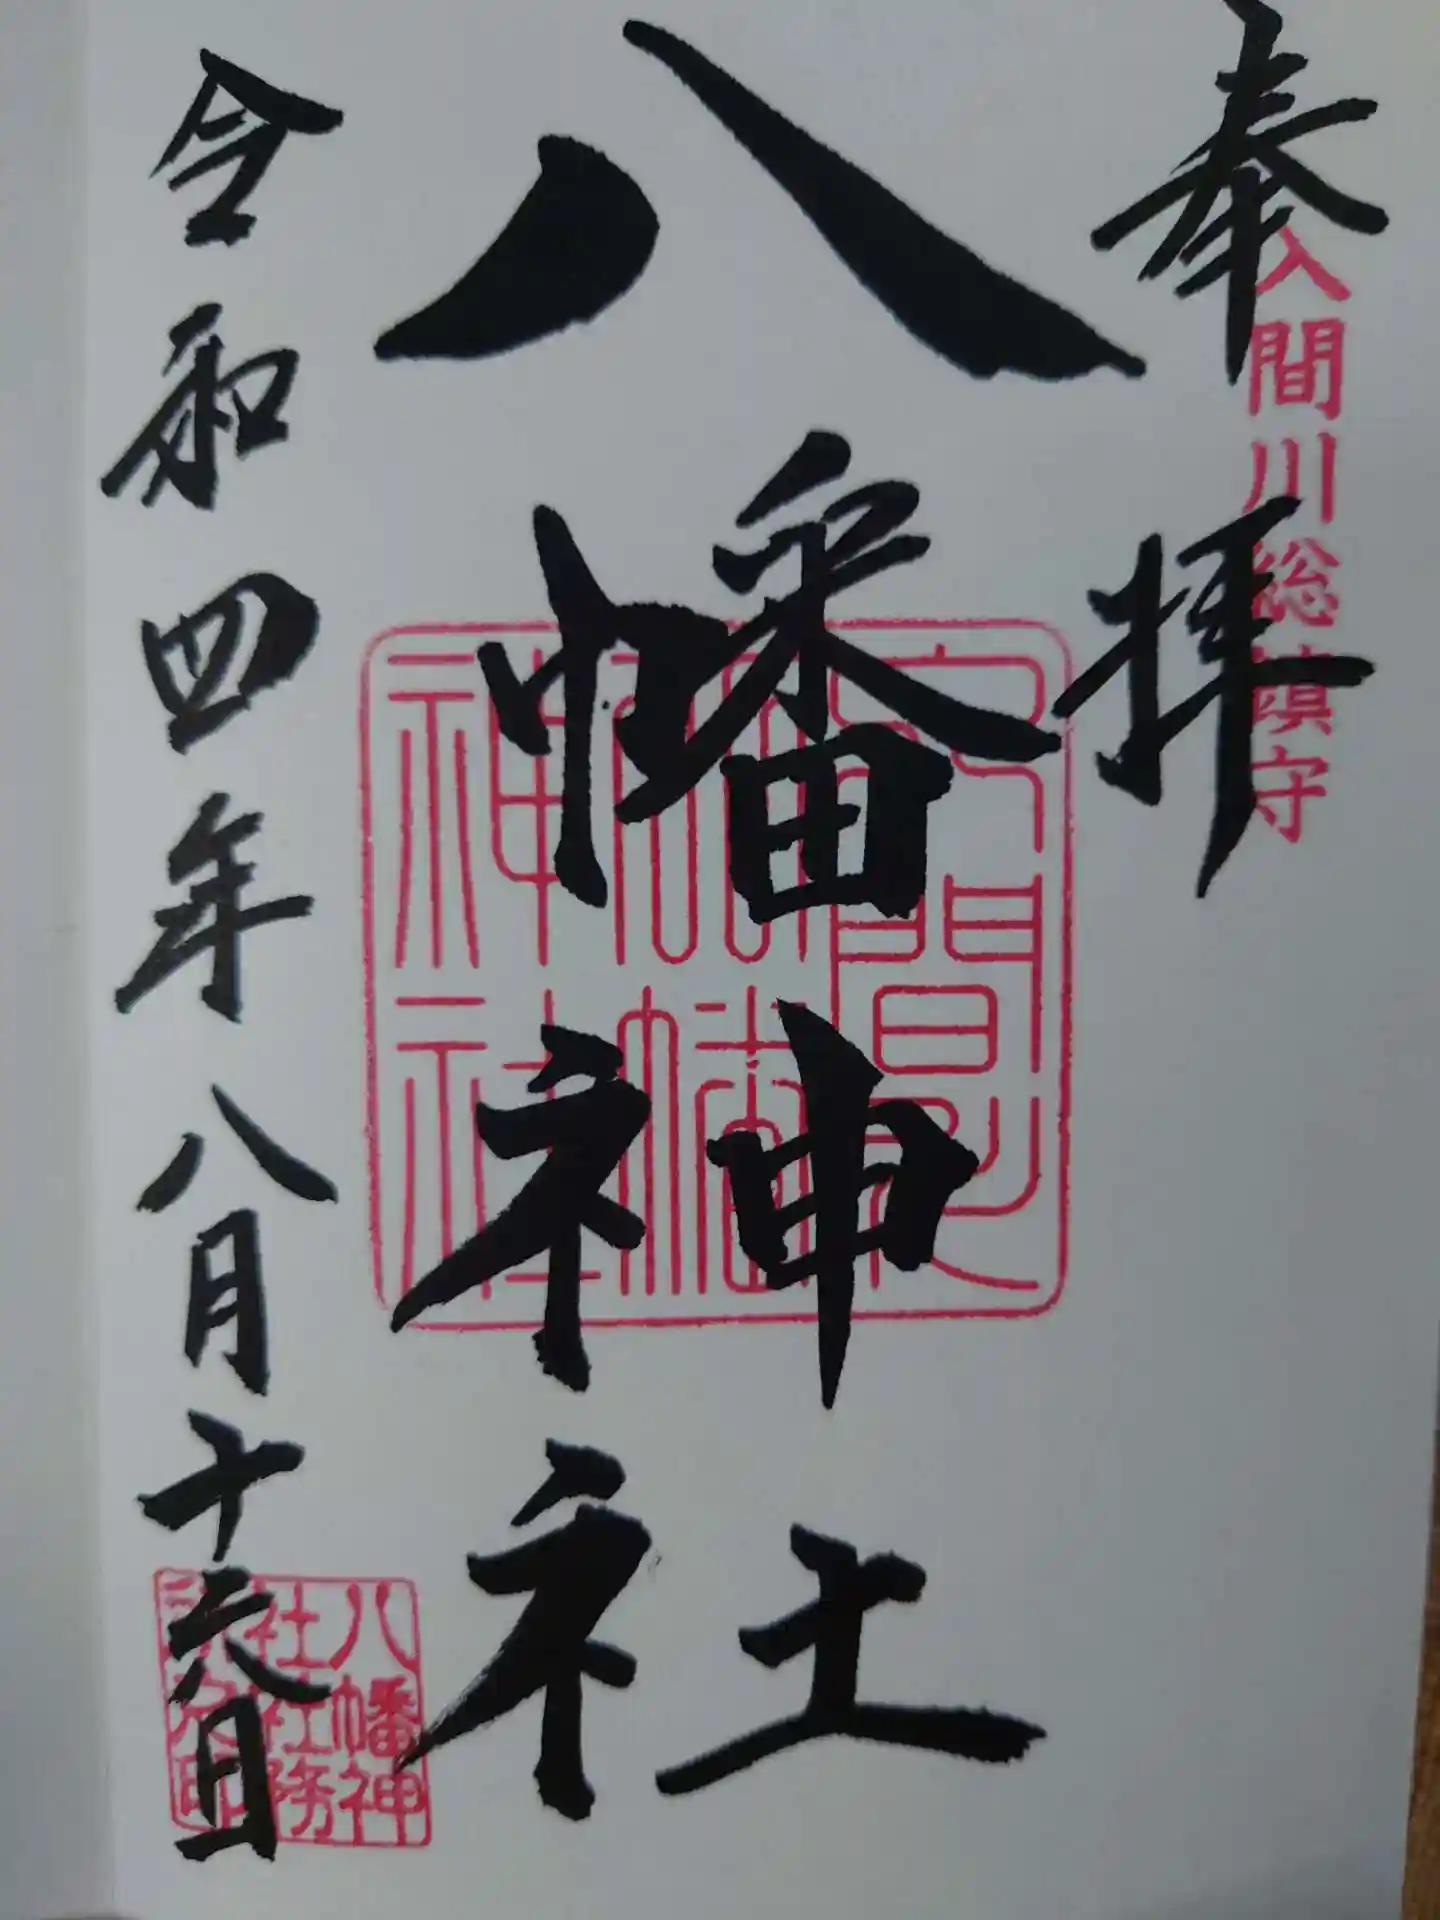 奉拝
入間川総鎮守
八幡神社
入間川八幡神社
令和四年八月十六日
八幡神
社社務